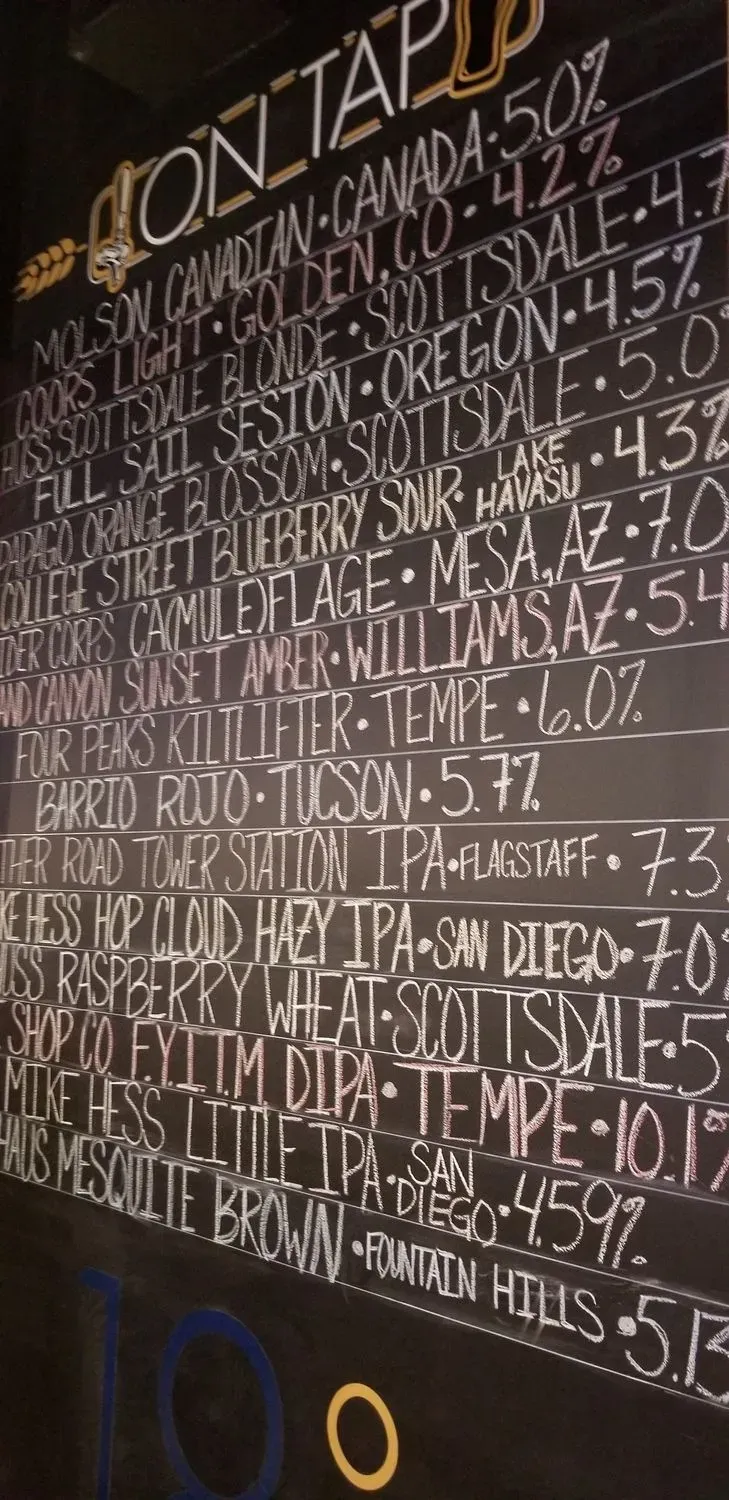 ON TAP
MOLSON CANADIAN • CANADA • 5.0%
COORS LIGHT • GOLDEN, CO • 4.2%
HUSS SCOTTSDALE BLONDE • SCOTTSDALE • 4.7
FULL SAIL SESION • OREGON • 4.5%
PAPAGO ORANGE BLOSSOM • SCOTTSDALE • 5.0
COLLEGE STREET BLUEBERRY SOUR • LAKE HAVASU • 4.3%
DER CORPS CA(MULE)FLAGE • MESA, AZ • 7.0
AND CANYON SUNSET AMBER • WILLIAMS, AZ • 5.4
FOUR PEAKS KILTLIFTER • TEMPE • 6.0%
BARRIO ROJO • TUCSON • 5.7%
THER ROAD TOWER STATION IPA • FLAGSTAFF • 7.3
KE HESS HOP CLOUD HAZY IPA • SAN DIEGO • 7.0
USS RASPBERRY WHEAT • SCOTTSDALE • 5
SHOP CO. F.Y.I.T.M. DIPA • TEMPE • 10.1%
MIKE HESS LITTLE IPA • SAN DIEGO • 4.59%
HAUS MESQUITE BROWN • FOUNTAIN HILLS • 5.13